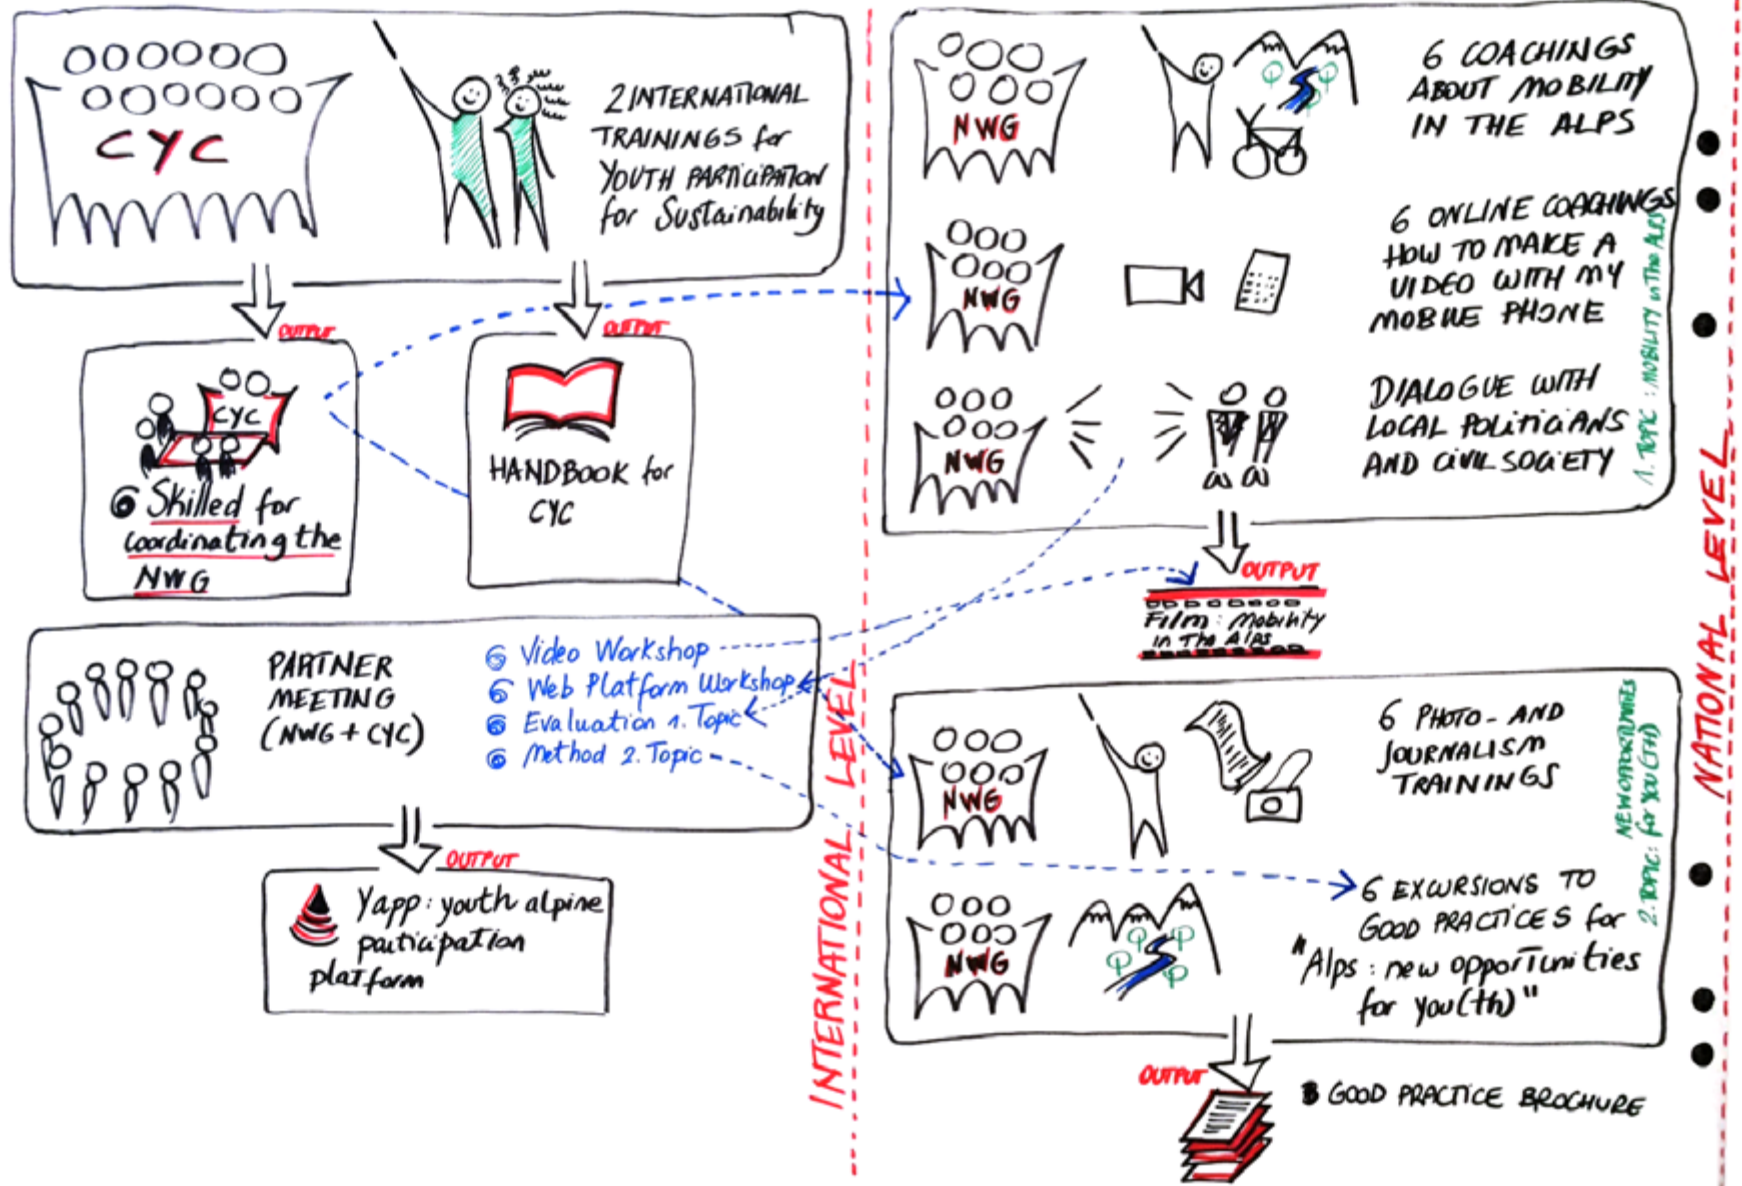 CYC
2 INTERNATIONAL
TRAININGS for
YOUTH PARTICIPATION
for Sustainability
OUTPUT
CYC
6 Skilled for
coordinating the
NWG
OUTPUT
HANDBOOK for
CYC
PARTNER
MEETING
(NWG + CYC)
6 Video Workshop
6 Web Platform Workshop
6 Evaluation 1. Topic
6 Method 2. Topic
OUTPUT
Yapp: youth alpine
participation
platform
INTERNATIONAL LEVEL
NWG
6 COACHINGS
ABOUT MOBILITY
IN THE ALPS
NWG
6 ONLINE COACHINGS
HOW TO MAKE A
VIDEO WITH MY
MOBILE PHONE
NWG
DIALOGUE WITH
LOCAL POLITICIANS
AND CIVIL SOCIETY
1. TOPIC: MOBILITY in The ALPS
OUTPUT
Film: Mobility
in The Alps
NWG
6 PHOTO- AND
JOURNALISM
TRAININGS
NWG
6 EXCURSIONS TO
GOOD PRACTICES for
"Alps: new opportunities
for you(th)"
NEW OPPORTUNITIES
2. TOPIC: for you(TH)
OUTPUT
GOOD PRACTICE BROCHURE
NATIONAL LEVEL